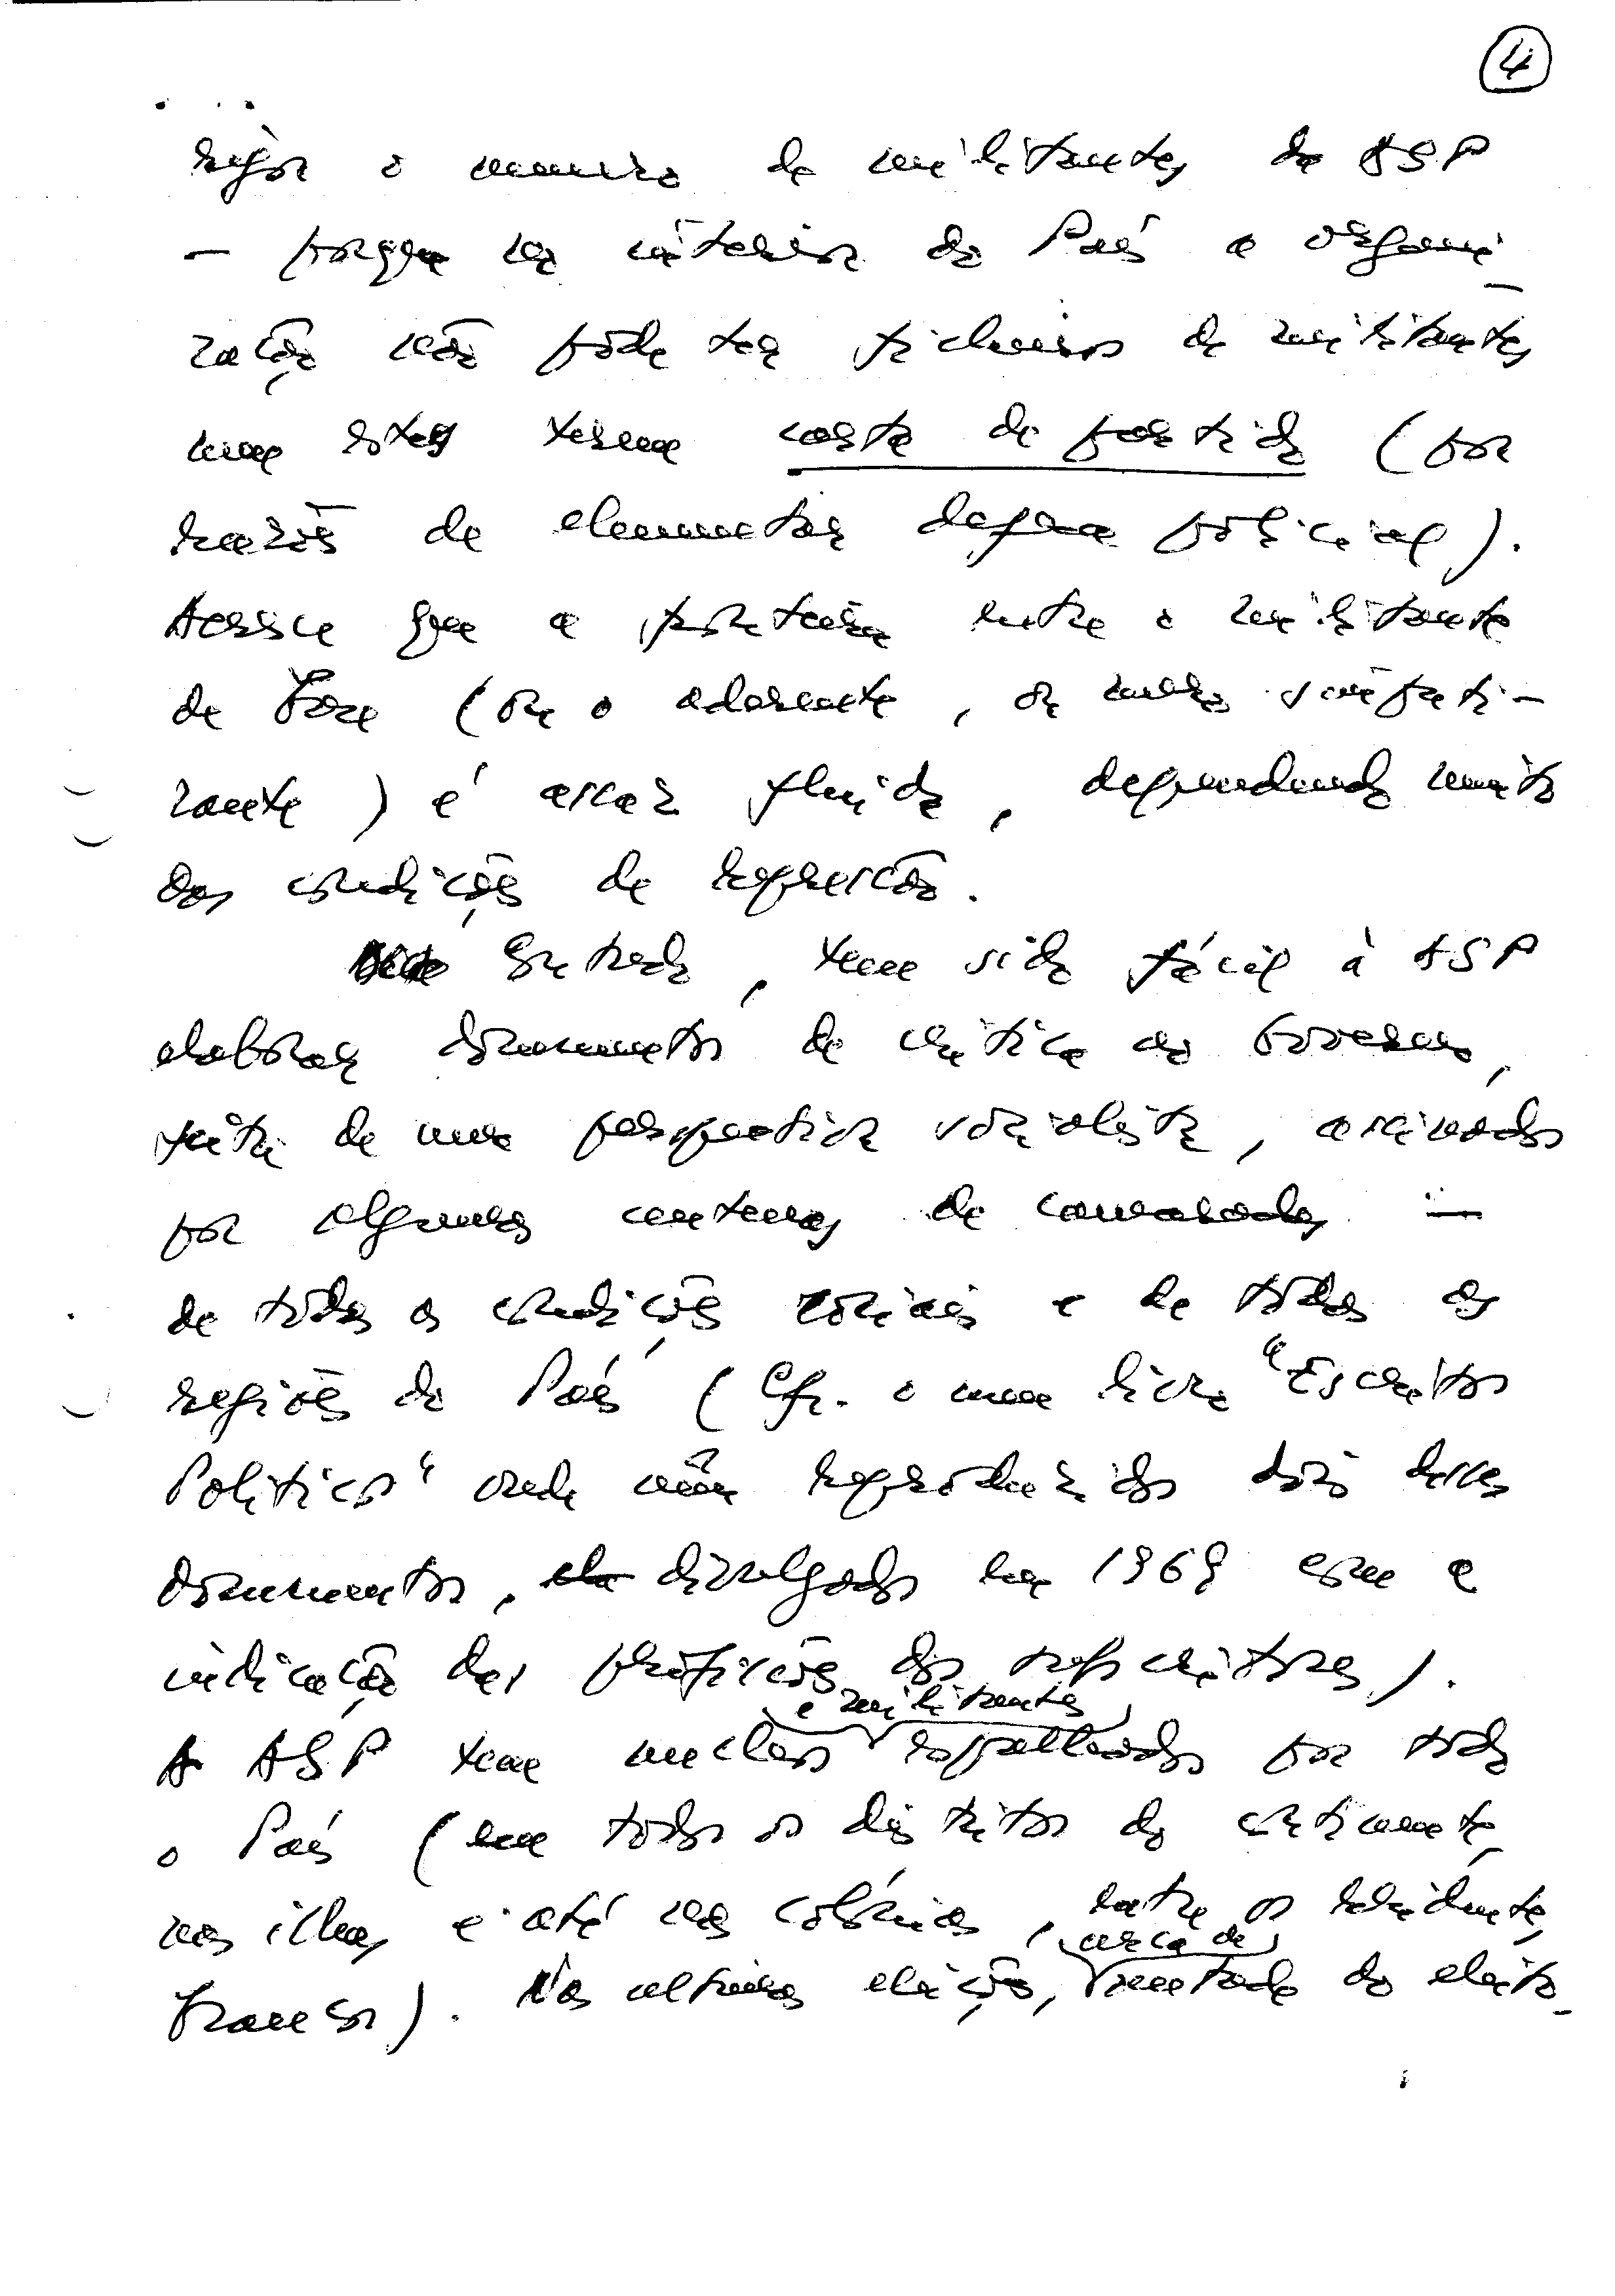 4
rigor o número de militantes da ASP
– porque no interior do País a organi-
zação não pode ter ficheiros de militantes
nem estes terem carta de partido (por
razões de elementar defesa policial).
Acresce que a fronteira entre o militante
de base (ou o aderente, ou mero simpati-
zante) é assaz fluida, dependendo muito
das condições de repressão.
Contudo, tem sido fácil à ASP
elaborar documentos de crítica ao Governo,
feita de uma perspectiva socialista, assinados
por algumas centenas de camaradas –
de todas as condições sociais e de todas as
regiões do País (Cfr. o meu livro "Escritos
Políticos" onde vêm reproduzidos dois desses
documentos, divulgados em 1969 com a
indicação das profissões dos subscritores).
A ASP tem núcleos e militantes espalhados por todo
o País (em todos os distritos do continente,
nas ilhas e até nas colónias, entre os residentes
brancos). Nas últimas eleições, cerca de metade do eleito-